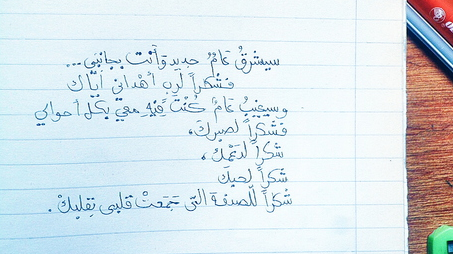 سيشرقُ عَامٌ جديد وَأنت بجَانبي...
فشكراً لرب أهْداني أيَّاك
وسيغيبُ عَامٌ كُنْتَ فِيهِ معيَ بكل أحوالي
فشكراً لصبركَ،
شكراً لدعمكْ،
شكراً لحبكَ
شكراً للصدفة التي جَمَعتْ قلبي بقلبكْ.